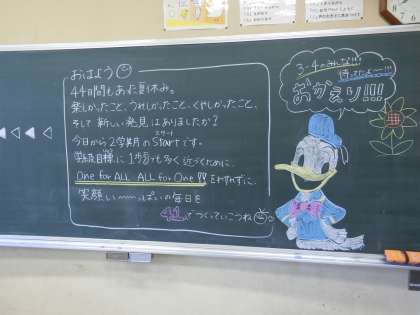 おはよう
44日間もあった夏休み。
楽しかったこと、うれしかったこと、くやしかったこと、
そして新しい発見はありましたか?
今日から2学期のStartです。
スタート
学級目標に1歩でも多く近づくために、
One for ALL ALL for One!! をわすれずに、
笑顔い〜〜っぱいの毎日を
つくっていこうね
3-4のみんな!!!
待ってたよー!!!
おかえり!!!